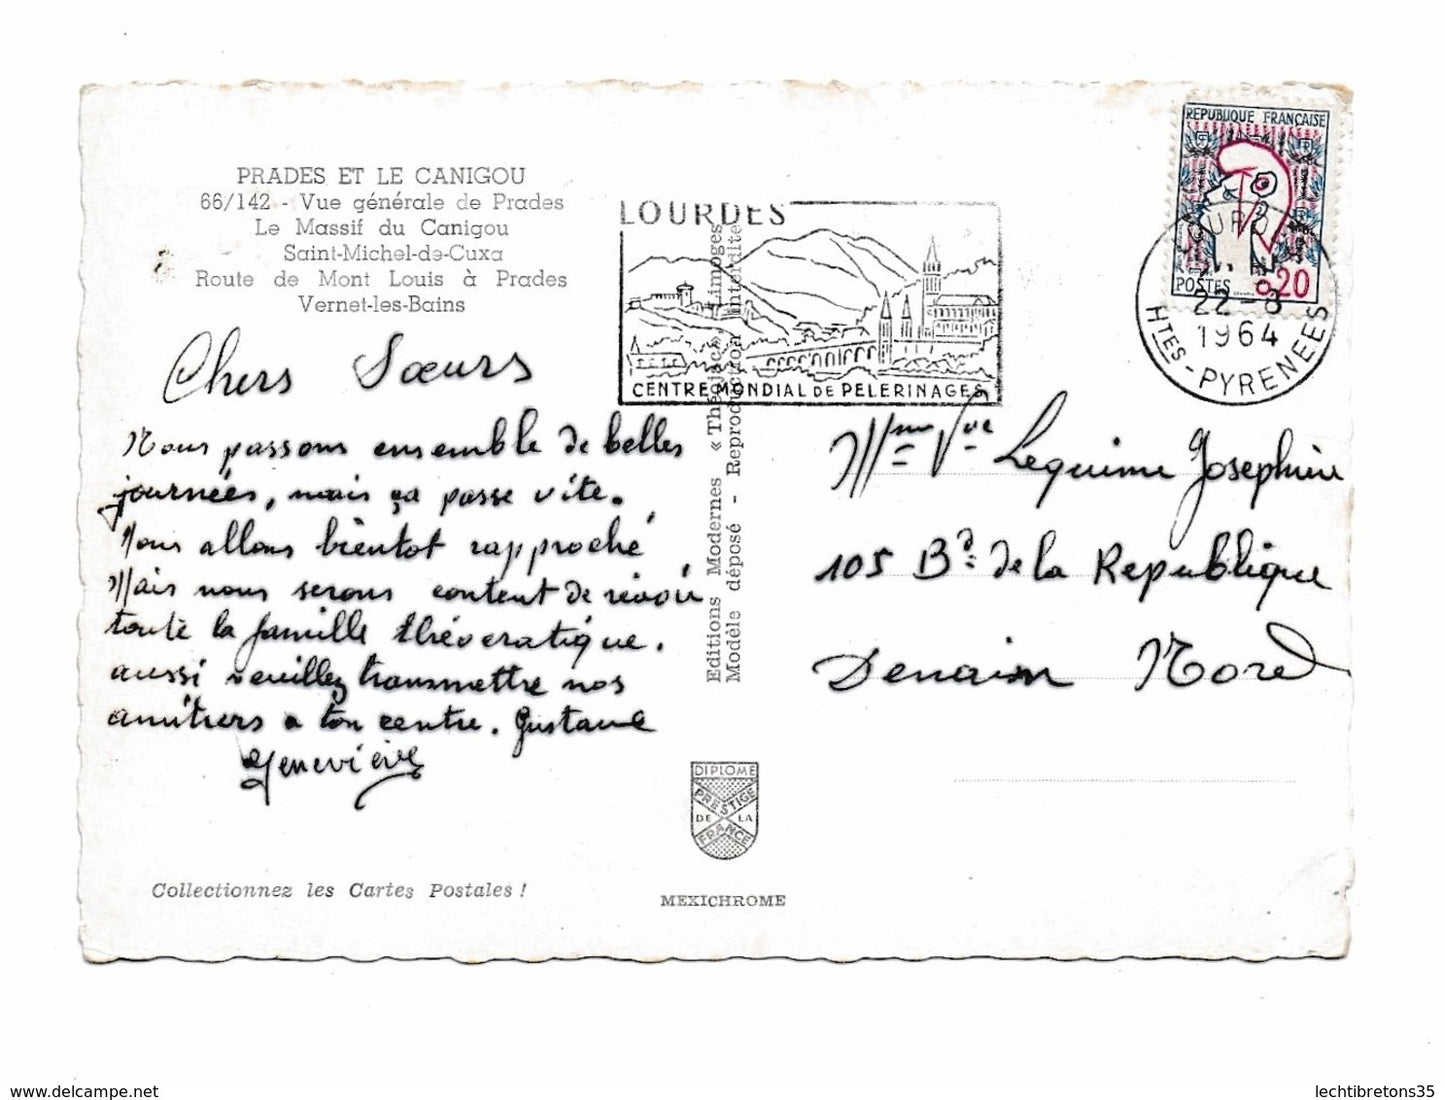 PRADES ET LE CANIGOU
66/142 - Vue générale de Prades
Le Massif du Canigou
Saint-Michel-de-Cuxa
Route de Mont Louis à Prades
Vernet-les-Bains
Chers Sœurs
Nous passons ensemble de belles
journées, mais ça passe vite.
Nous allons bientot rapproché
Mais nous serons content de revoir
toute la famille théocratique.
aussi veuillez transmettre nos
amitiers a ton centre. Gustave
Geneviève
Collectionnez les Cartes Postales !
Editions Modernes « Théojac », Limoges
Modèle déposé - Reproduction interdite
DIPLOME
PRESTIGE
DE LA
FRANCE
MEXICHROME
LOURDES
CENTRE MONDIAL DE PELERINAGES
REPUBLIQUE FRANÇAISE
POSTES 0,20
LOURDES
22-8
1964
HTES-PYRENEES
Mme Vve Lequime Josephine
105 Bd de la Republique
Denain Nord
delcampe.net
lechtibretons35